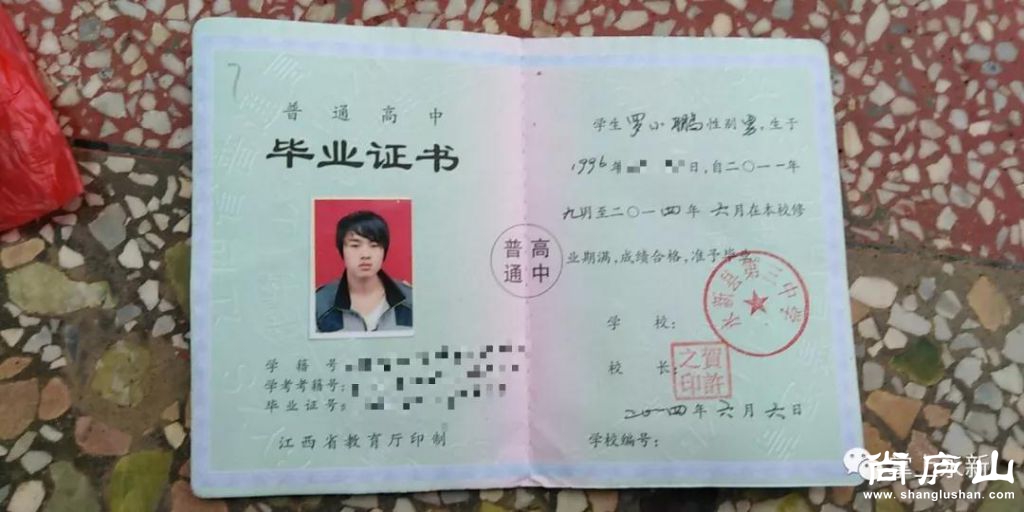 普通高中
毕业证书
学籍号
学考考籍号:
毕业证号:
江西省教育厅印制
普通
高中
学生 罗小鹏 性别 男,生于
1996年 日,自二〇一一年
九月至二〇一四年 六月在本校修
业期满,成绩合格,准予毕业
永新县第三中学
学 校:
校 长:
賀許之印
二〇一四年六月六日
学校编号:
尚庐山
www.shanglushan.com